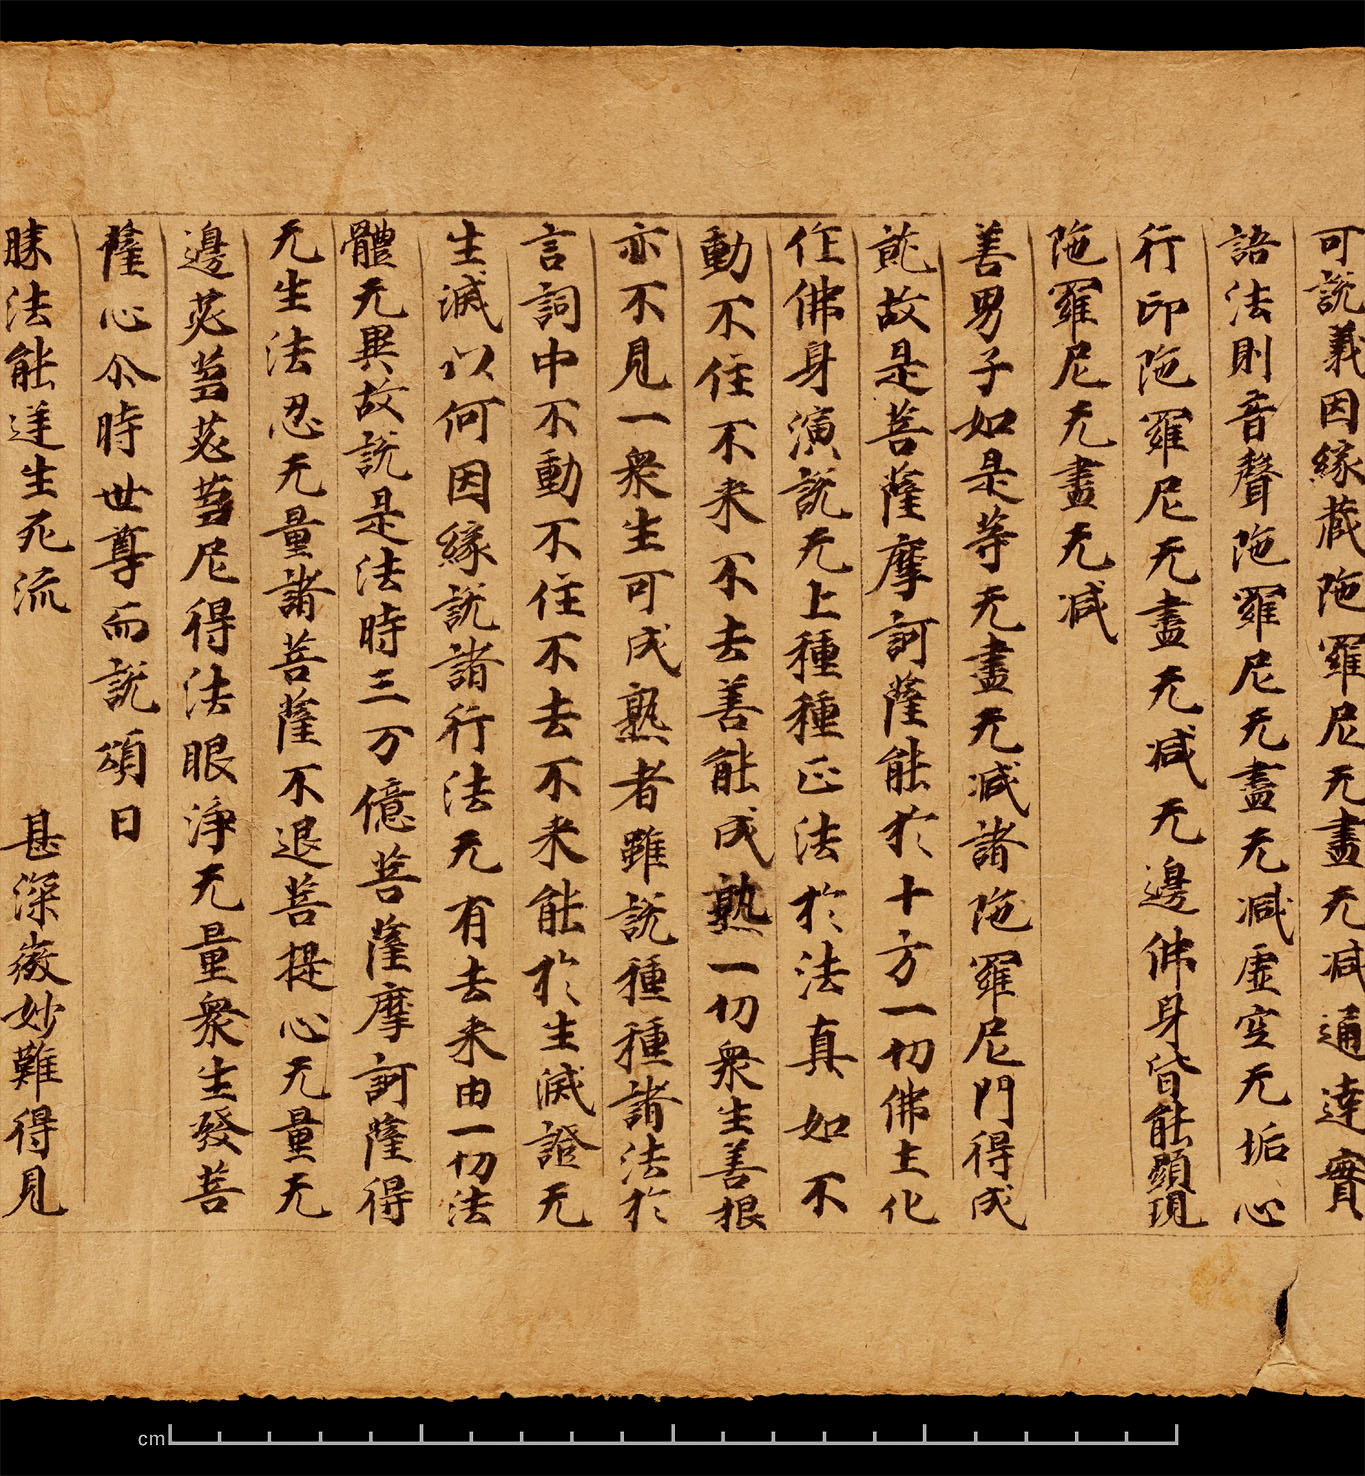 可說義因緣藏陁羅尼无盡无减通達實
語法則音聲陁羅尼无盡无减虛空无垢心
行印陁羅尼无盡无减无邊佛身皆能顯現
陁羅尼无盡无减
善男子如是等无盡无减諸陁羅尼門得成
就故是菩薩摩訶薩能於十方一切佛土化
作佛身演說无上種種正法於法真如不
動不住不来不去善能成熟一切衆生善根
亦不見一衆生可成熟者雖說種種諸法於
言詞中不動不住不去不来能於生滅證无
生滅以何因緣說諸行法无有去来由一切法
體无異故說是法時三万億菩薩摩訶薩得
无生法忍无量諸菩薩不退菩提心无量无
邊苾蒭苾蒭尼得法眼淨无量衆生發菩
薩心尒時世尊而說頌曰
勝法能逆生死流 甚深微妙難得見